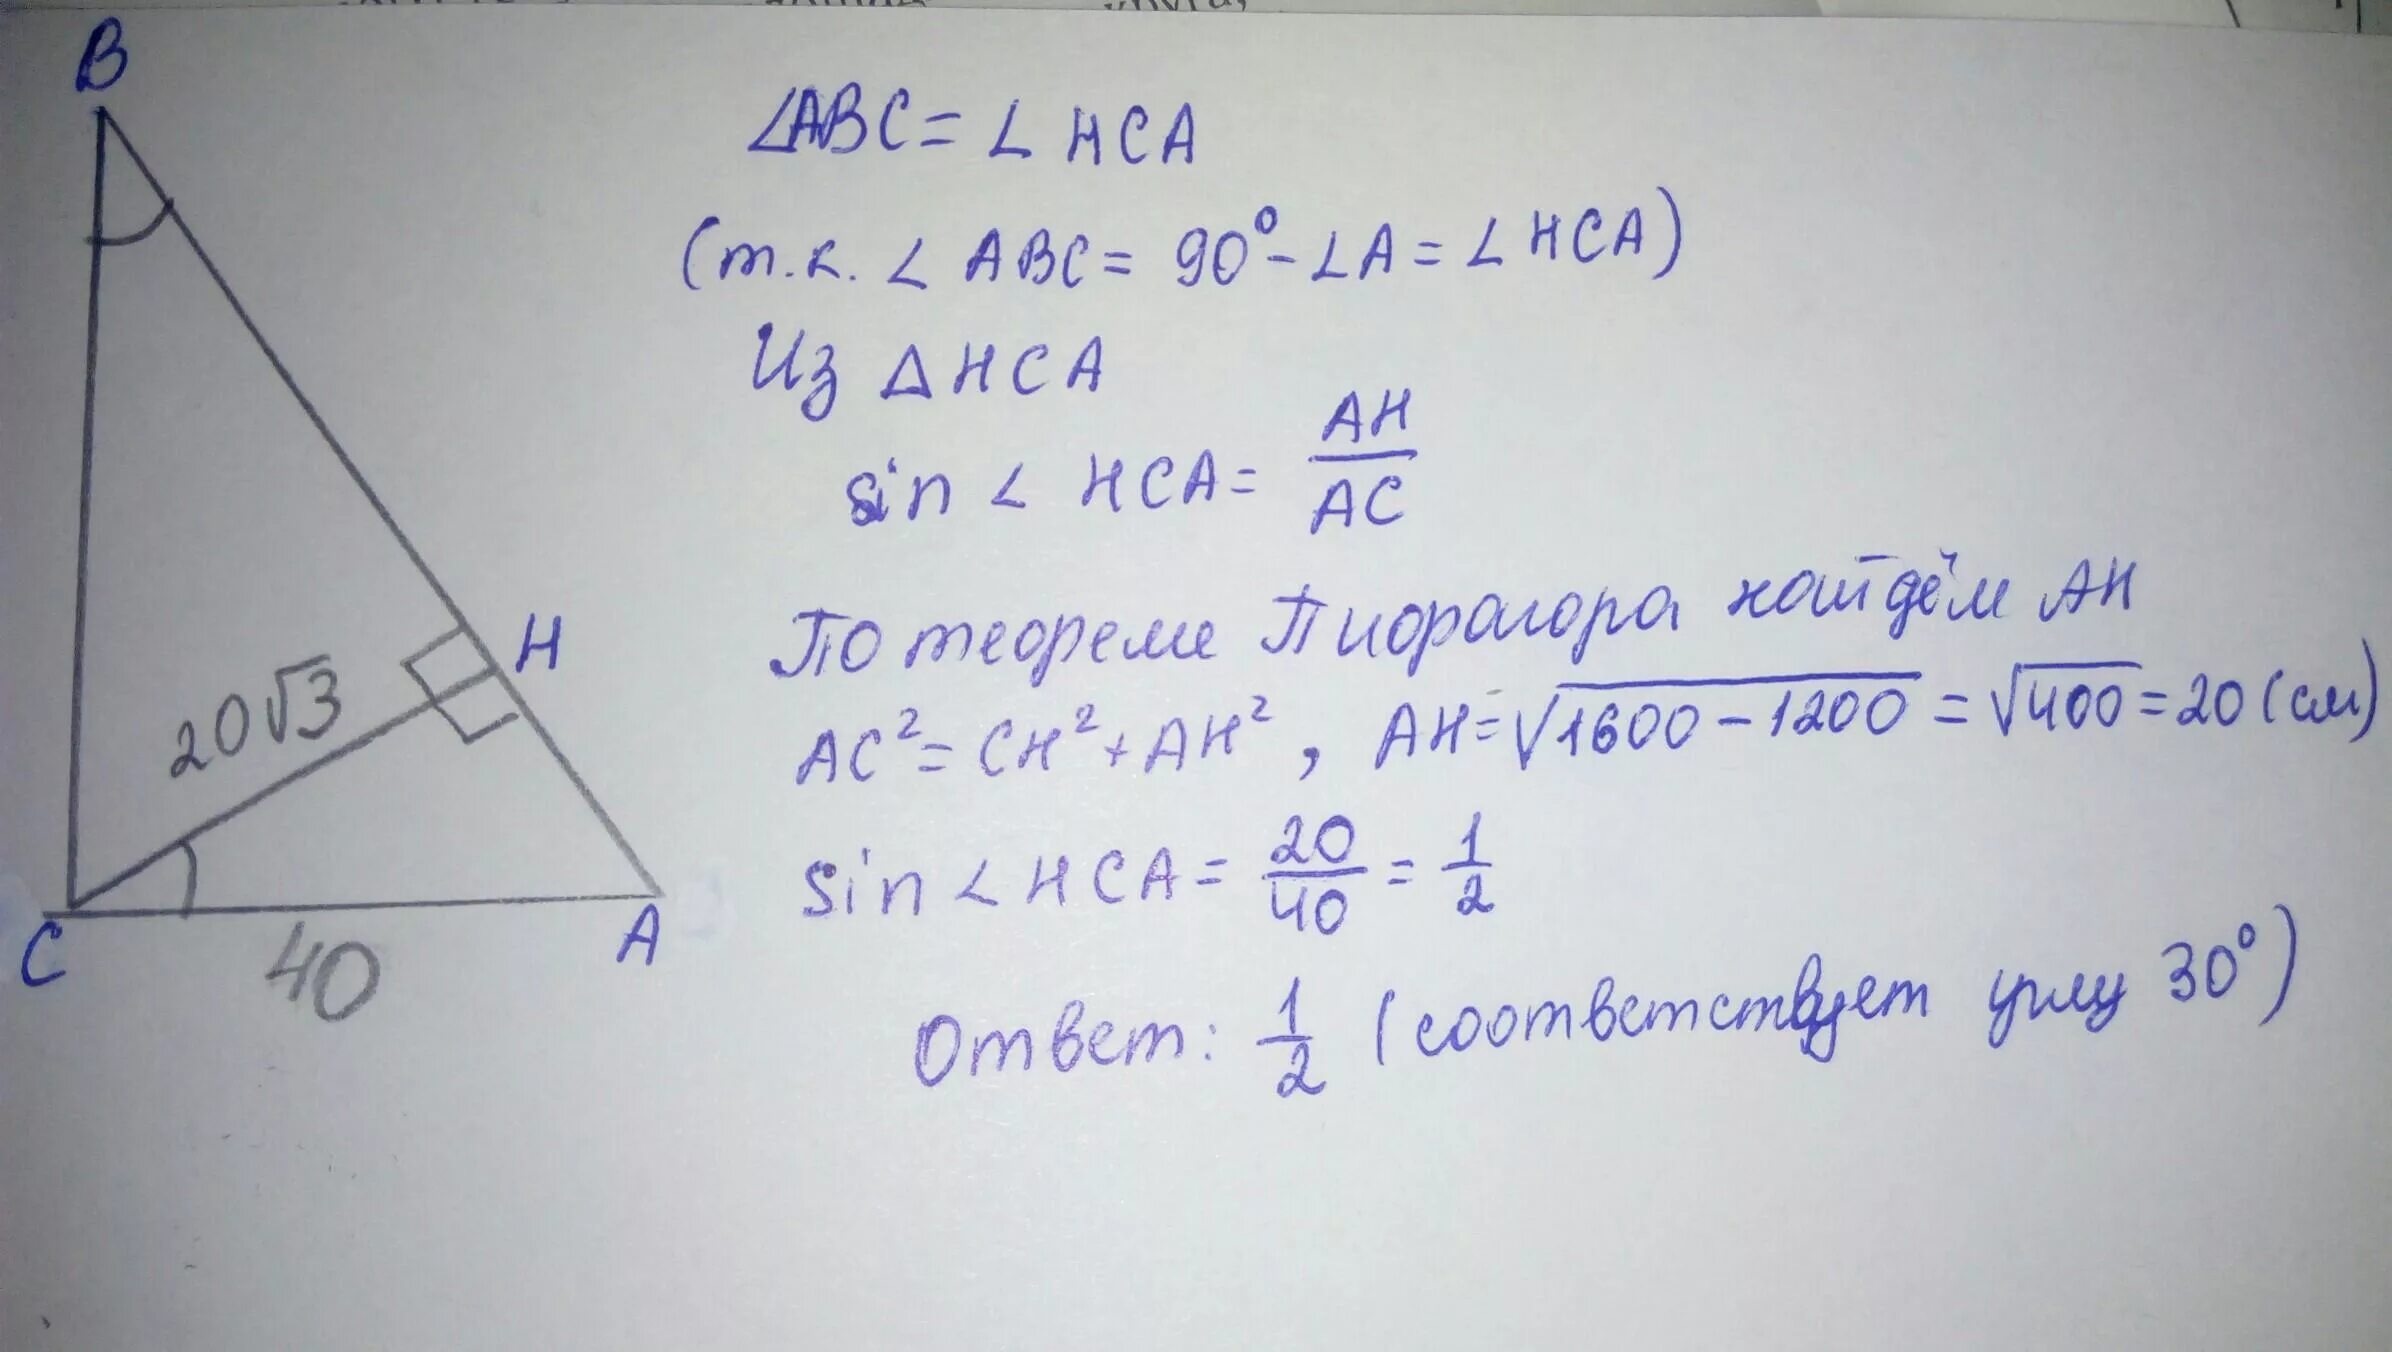 B
∠ABC = ∠HCA
(т.к. ∠ABC = 90° - ∠A = ∠HCA)
Из △HCA
sin ∠HCA = AH/AC
По теореме Пиорагора найдём AH
AC² = CH² + AH², AH = √1600 - 1200 = √400 = 20 (см)
sin ∠HCA = 20/40 = 1/2
Ответ: 1/2 (соответствует углу 30°)
H
20√3
C
40
A